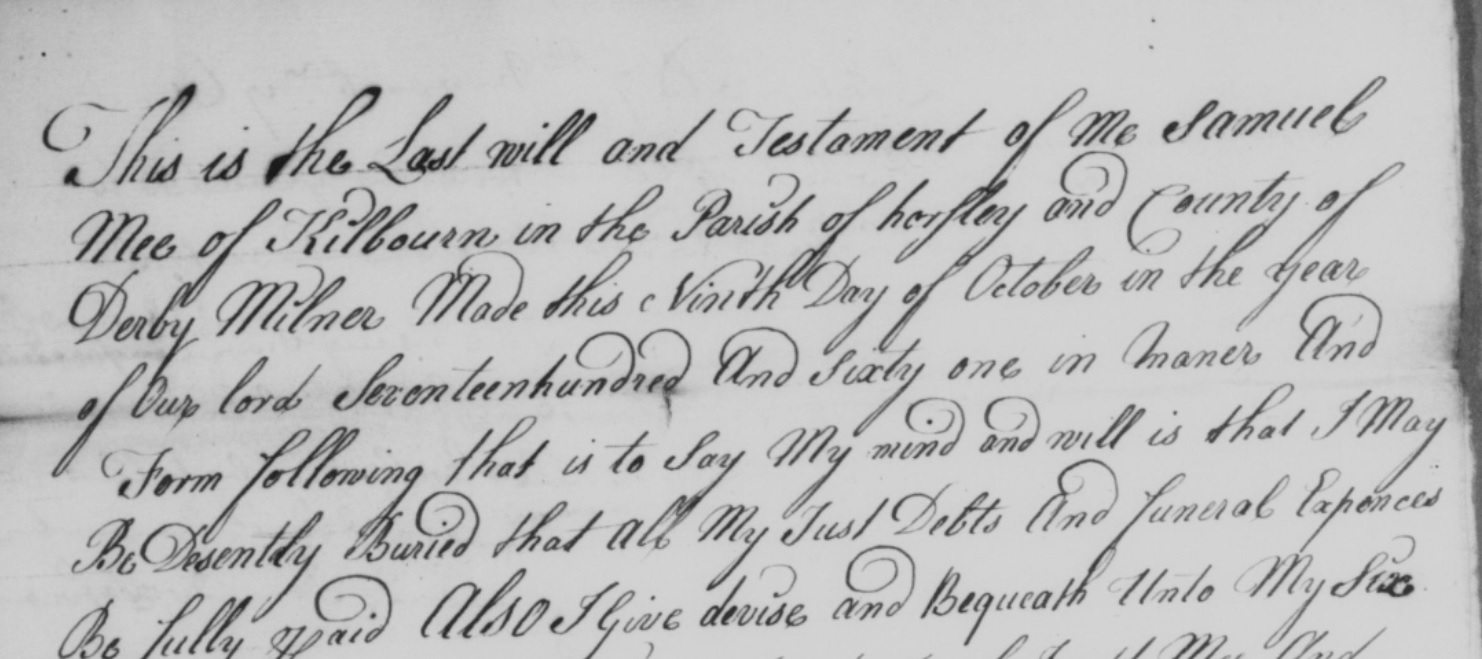 This is the Last will and Testament of Me Samuel
Mee of Kilbourn in the Parish of horsley and County of
Derby Milner Made this Ninth Day of October in the year
of Our lord Seventeenhundred And Sixty one in Maner And
Form following that is to Say My mind and will is that I May
Be Desently Buried that all My Just Debts And funeral Expences
Be fully paid Also I Give devise and Bequeath Unto My Six
My And